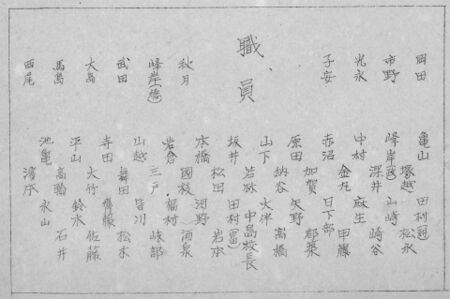 岡田
亀山 田村
塚越 松永
市野
峰岸 山崎
深井 崎谷
光永
中村 麻生
金丸 甲藤
子安
赤沼 日下部
加賀 都築
原田 矢野
納谷 高橋
職員
山下 大津
若林 中島校長
坂井 田村(冨)
松田 岩本
秋月
本橋 河野
國枝 酒泉
峰岸(橋)
岩倉 稲村
三戸 磯部
武田
山越 皆川
舞田 松本
大島
寺田 齋藤
大竹 佐藤
馬島
平山 鈴木
石井
西尾
池亀 永山